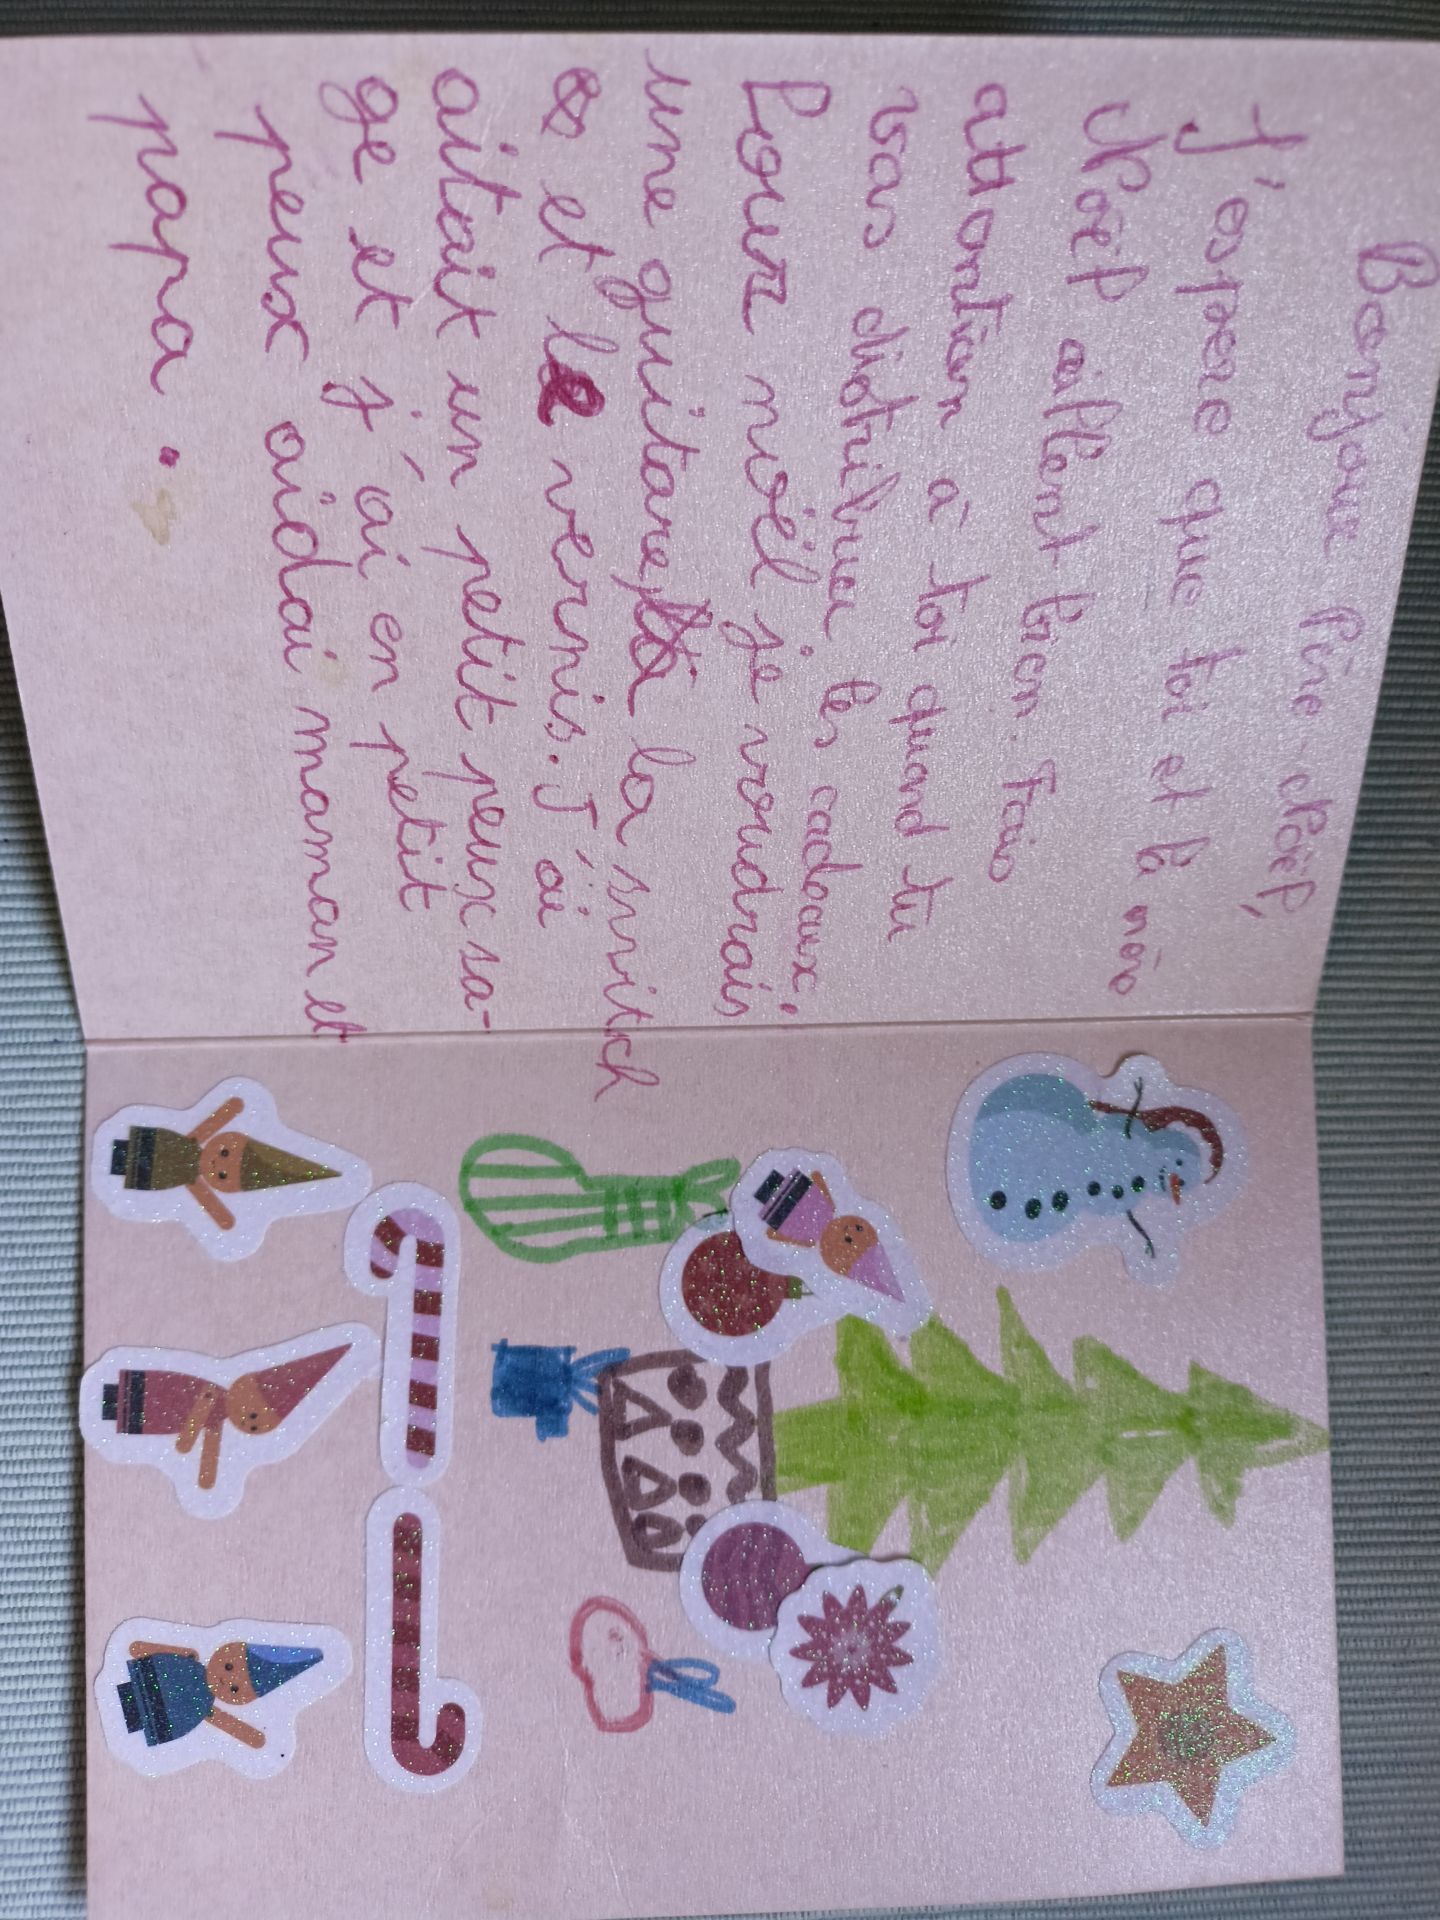 Bonjour Père-Noël,
J'espere que toi et la mère
Noël aillent bien. Fais
attention à toi quand tu
vas distribuer les cadeaux.
Pour noël je voudrais
une guitare, la switch
et le vernis. J'ai
aitait un petit peux sa-
ge et j'ai en petit
peux aidai maman et
papa.